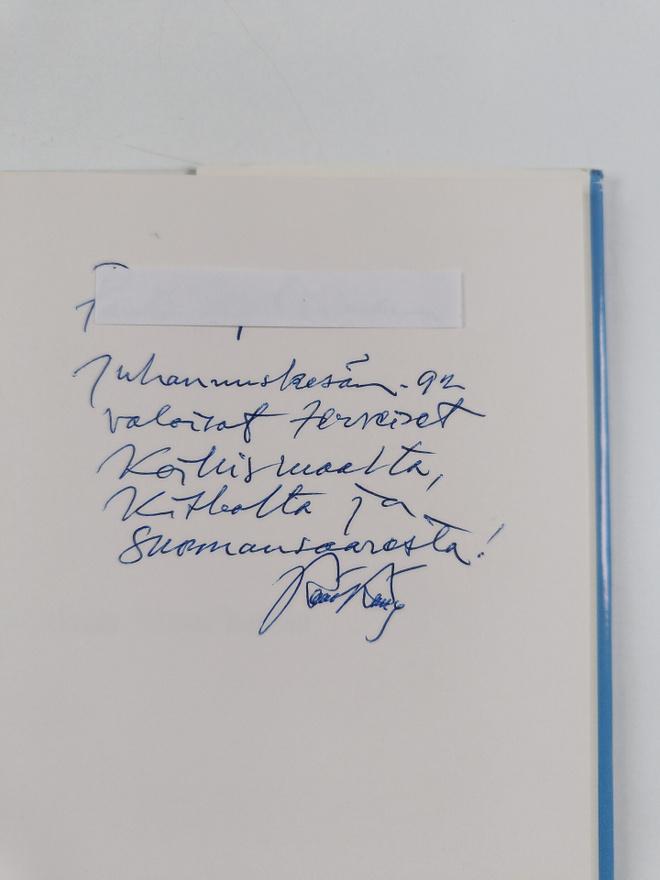 Juhannuskesän -92
valoisat terveiset
Koillismaalta,
Kitkalta ja
Suomansaaresta!